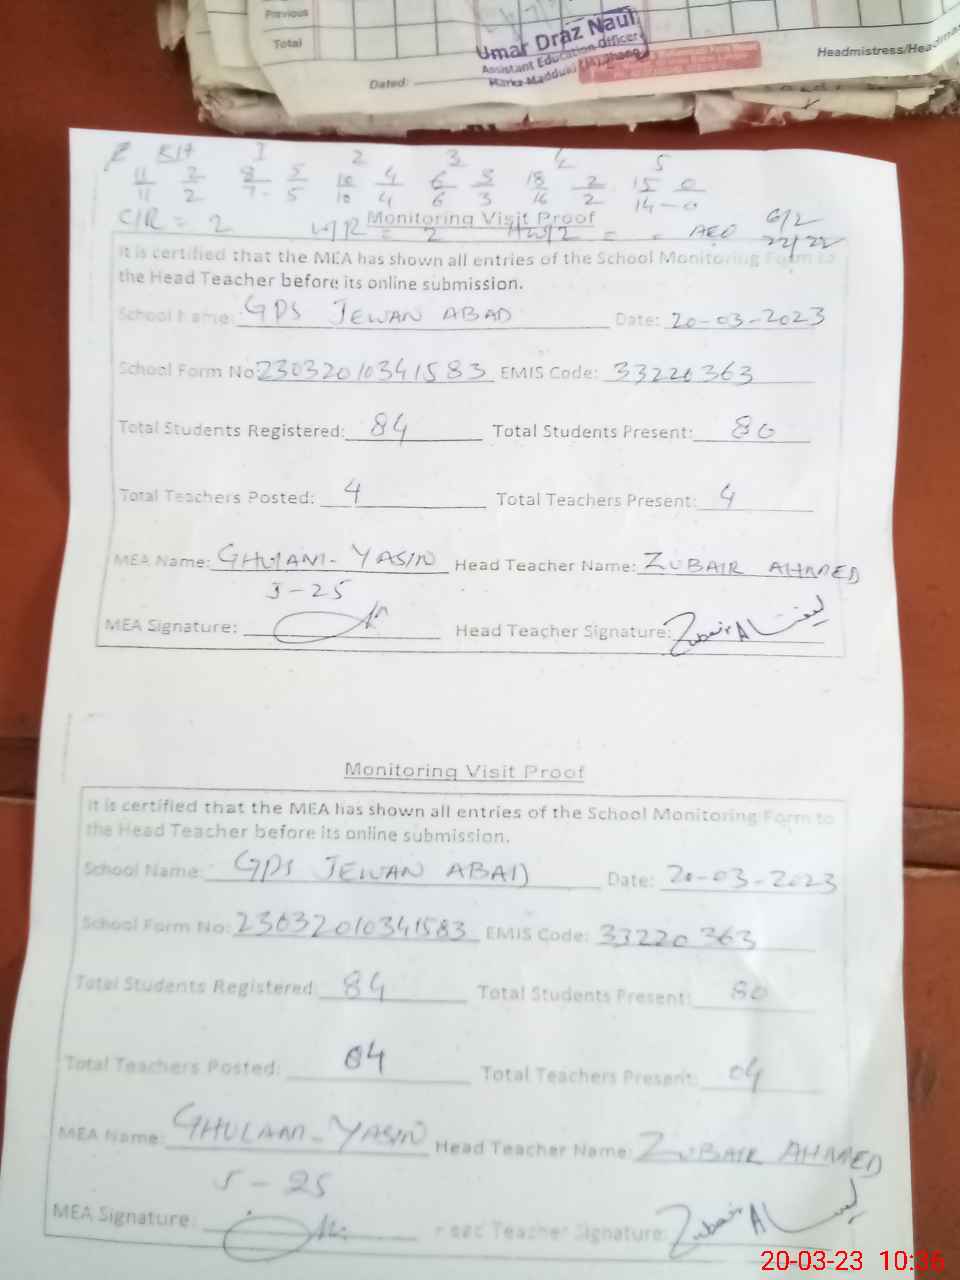 Previous
Total
Umar Draz Naul
Assistant Education Officer
Dated:
Headmistress/Head
1 2 3 4 5
11 2 8 5 10 4 6 3 18 2 15 0
11 2 7 5 10 4 6 3 16 2 14 0
C/R = 2 W/R = 2 = AEO 6/2
Monitoring Visit Proof
22/22
It is certified that the MEA has shown all entries of the School Monitoring Form to
the Head Teacher before its online submission.
School Name: GPS JEWAN ABAD Date: 20-03-2023
School Form No: 23032010341583 EMIS Code: 33220363
Total Students Registered: 84 Total Students Present: 80
Total Teachers Posted: 4 Total Teachers Present: 4
MEA Name: GHULAM-YASIN Head Teacher Name: ZUBAIR AHMED
J-25
MEA Signature: Head Teacher Signature: Zubair A
Monitoring Visit Proof
It is certified that the MEA has shown all entries of the School Monitoring Form to
the Head Teacher before its online submission.
School Name: GPS JEWAN ABAD Date: 20-03-2023
School Form No: 23032010341583 EMIS Code: 33220363
Total Students Registered: 84 Total Students Present: 80
Total Teachers Posted: 04 Total Teachers Present: 04
MEA Name: GHULAM-YASIN Head Teacher Name: ZUBAIR AHMED
J-25
MEA Signature: Head Teacher Signature: Zubair A
20-03-23 10:36